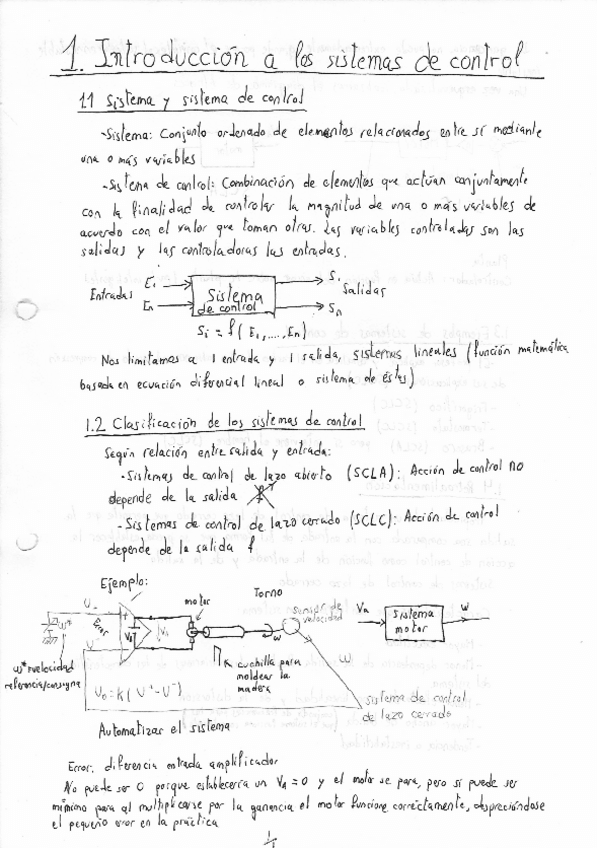 1. Introducción a los sistemas de control
1.1 Sistema y sistema de control
-Sistema: Conjunto ordenado de elementos relacionados entre sí mediante
una o más variables
-Sistema de control: Combinación de elementos que actúan conjuntamente
con la finalidad de controlar la magnitud de una o más variables de
acuerdo con el valor que toman otras. Las variables controladas son las
salidas y las controladoras las entradas.
Entradas E₁ En Sistema de control S₁ Sn Salidas
Si = f(E₁,...,En)
Nos limitamos a 1 entrada y 1 salida, sistemas lineales (función matemática
basada en ecuación diferencial lineal o sistema de éstas)
1.2 Clasificación de los sistemas de control
Según relación entre salida y entrada:
-Sistemas de control de lazo abierto (SCLA): Acción de control no
depende de la salida
-Sistemas de control de lazo cerrado (SCLC): Acción de control
depende de la salida f
Ejemplo:
motor
Torno
sensor de
velocidad
Error
ω
Va
sistema
motor
ω
cuchilla para
moldear la
madera
ω* velocidad
referencia/consigna
V₀=K(V⁺-V⁻)
sistema de control
de lazo cerrado
Automatizar el sistema
Error: diferencia entrada amplificador
No puede ser 0 porque establecería un Va=0 y el motor se para, pero sí puede ser
mínimo para al multiplicarse por la ganancia el motor funcione correctamente, despreciándose
el pequeño error en la práctica